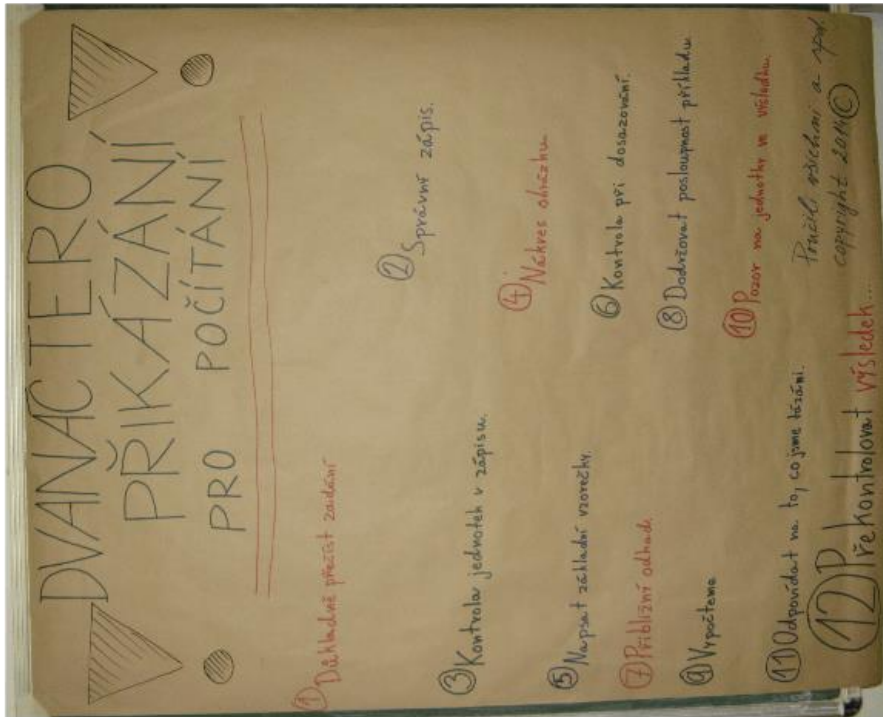 DVANÁCTERO
PŘIKÁZÁNÍ
PRO POČÍTÁNÍ
① Důkladně přečíst zadání
② Správný zápis.
③ Kontrola jednotek v zápisu.
④ Nákres obrázku.
⑤ Napsat základní vzorečky.
⑥ Kontrola při dosazování.
⑦ Přibližný odhad.
⑧ Dodržovat posloupnost příkladu.
⑨ Vypočteme
⑩ Pozor na jednotky ve výsledku.
⑪ Odpovídat na to, co jsme tázáni.
⑫ Překontrolovat výsledek...
všichni a
copyright 2014 ©